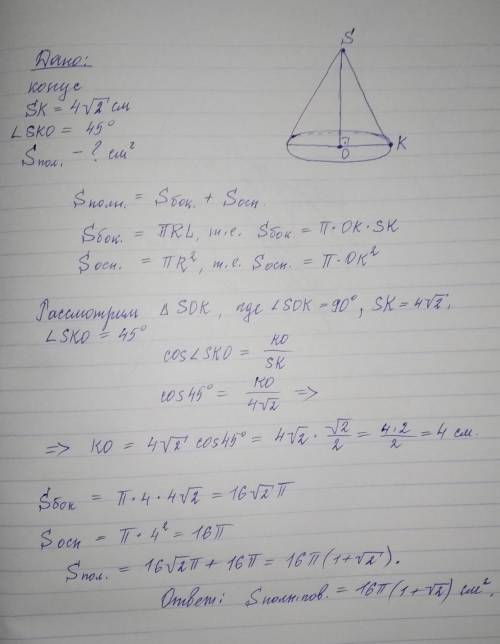 Дано:
конус
SK = 4√2 см
∠SKO = 45°
Sпол. - ? см²
S
K
O
Sполн. = Sбок. + Sосн.
Sбок. = πRL, т.е. Sбок. = π·OK·SK
Sосн. = πR², т.е. Sосн. = π·OK²
Рассмотрим △ SOK, где ∠SOK = 90°, SK = 4√2,
∠SKO = 45°
cos∠SKO = KO/SK
cos45° = KO/4√2 =>
=> KO = 4√2 cos45° = 4√2 · √2/2 = 4·2/2 = 4 см.
Sбок = π·4·4√2 = 16√2π
Sосн = π·4² = 16π
Sпол. = 16√2π + 16π = 16π(1+√2).
Ответ: Sполн.пов. = 16π(1+√2) см².